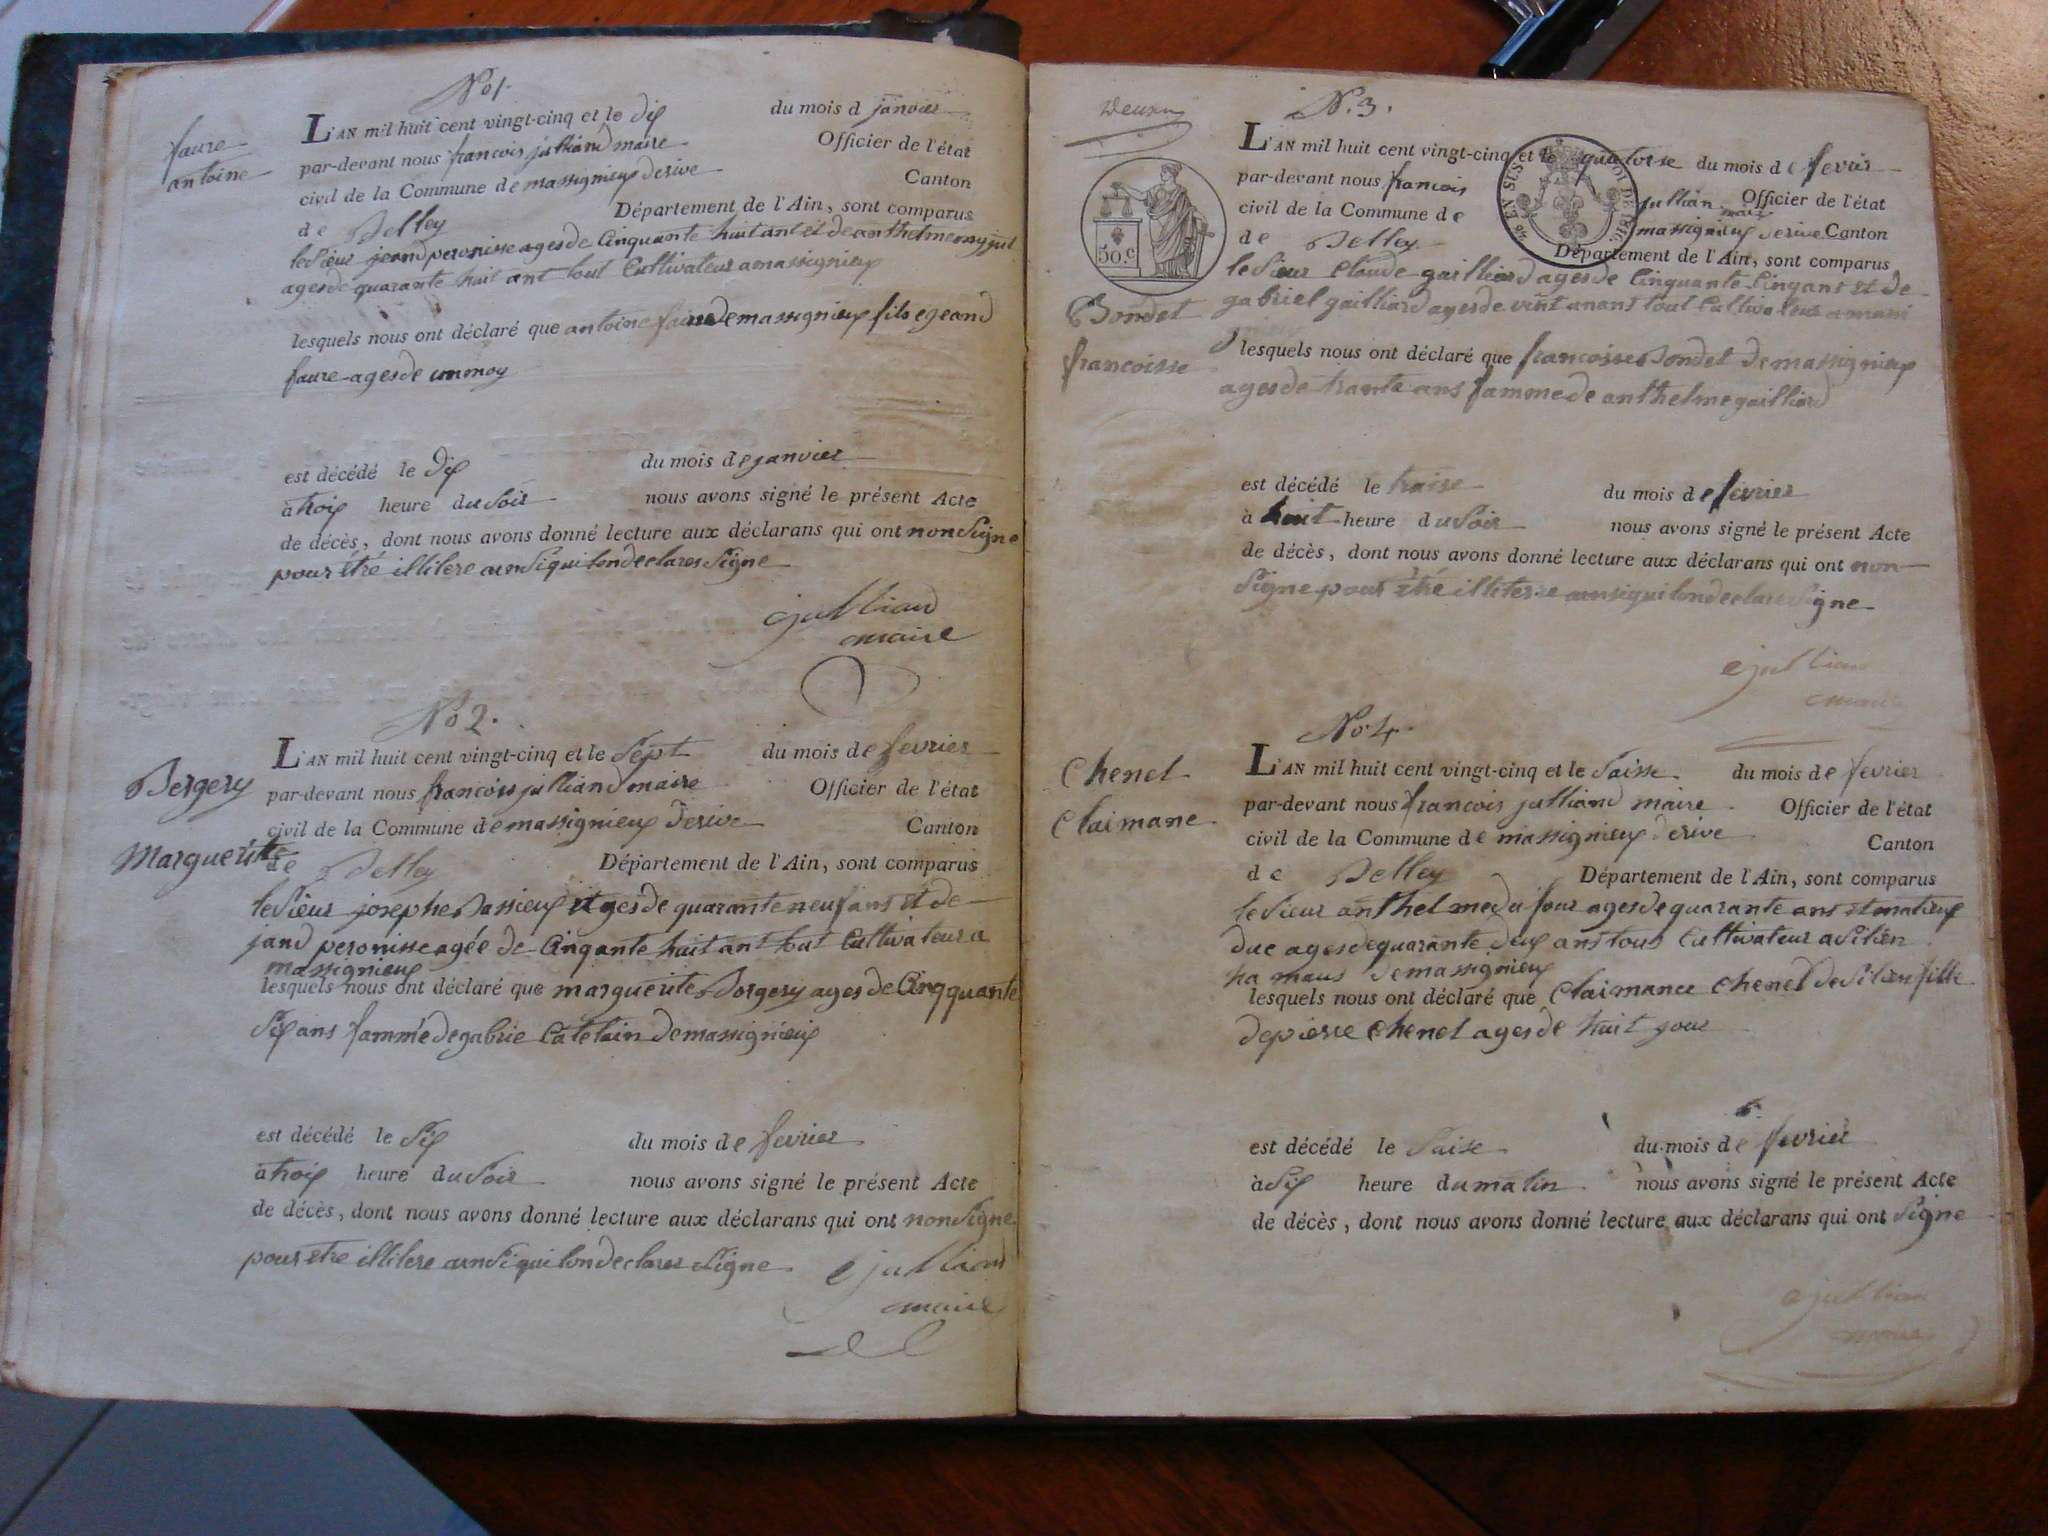 No 1.
faure
antoine
L'AN mil huit cent vingt-cinq et le dix du mois d janvier
par-devant nous francois julliand maire Officier de l'état
civil de la Commune de massignieux derive Canton
de Belley Département de l'Ain, sont comparus
le Sieur jeand peronisse ages de Cinquante huit ant et de anthelme
ages de quarante huit ant tout Cultivateur a massignieux
lesquels nous ont déclaré que antoine faure de massignieux fils e geand
faure ages de un moy
est décédé le dix du mois de janvier
à troix heure du Soir nous avons signé le présent Acte
de décès, dont nous avons donné lecture aux déclarans qui ont non Signe
pour être illitere ainsi qui lon declares Signe
julliand
maire
No 2.
Bergery
Marguerite
L'AN mil huit cent vingt-cinq et le Sept du mois de fevrier
par-devant nous francois julliand maire Officier de l'état
civil de la Commune de massignieux derive Canton
de Belley Département de l'Ain, sont comparus
le Sieur josephe Bassieux ages de quarante neuf ans et de
jand peronisse agée de Cinqante huit ant tout Cultivateur a
massignieux
lesquels nous ont déclaré que marguerite Borgery ages de Cinqquante
Six ans famme de gabrie Catelain de massignieux
est décédé le Six du mois de fevrier
à troix heure du Soir nous avons signé le présent Acte
de décès, dont nous avons donné lecture aux déclarans qui ont non Signe
pour etre illitere ainsi qui lon declares Signe
julliand
maire
Deuxm
N. 3.
50.c
Bondet
francoisse
L'AN mil huit cent vingt-cinq et le quatorse du mois de fevrir
par-devant nous francois jullian maire Officier de l'état
civil de la Commune de massignieux derive Canton
de Belley Département de l'Ain, sont comparus
le Sieur Claude gailliard ages de Cinquante Cinq ans et de
gabriel gailliard ages de vint anans tout Cultivateur a massi
lesquels nous ont déclaré que francoisse Bondet de massignieux
ages de trante ans famme de anthelme gailliard
est décédé le traise du mois de fevrier
à huit heure du Soir nous avons signé le présent Acte
de décès, dont nous avons donné lecture aux déclarans qui ont non
Signe pour être illiterre ainsi qui lon declare Signe
julliand
maire
No. 4.
Chenel
Claimane
L'AN mil huit cent vingt-cinq et le Saisse du mois de fevrier
par-devant nous francois julliand maire Officier de l'état
civil de la Commune de massignieux derive Canton
de Belley Département de l'Ain, sont comparus
le Sieur anthelme dufour ages de quarante ans et matieux
duc ages de quarante deux ans tous Cultivateur a Silien
ha maus de massignieux
lesquels nous ont déclaré que Claimance Chenel de Silien fille
de pierre Chenel ages de huit jour
est décédé le Saise du mois de fevrier
à Six heure du matin nous avons signé le présent Acte
de décès, dont nous avons donné lecture aux déclarans qui ont Signe
julliand
maire